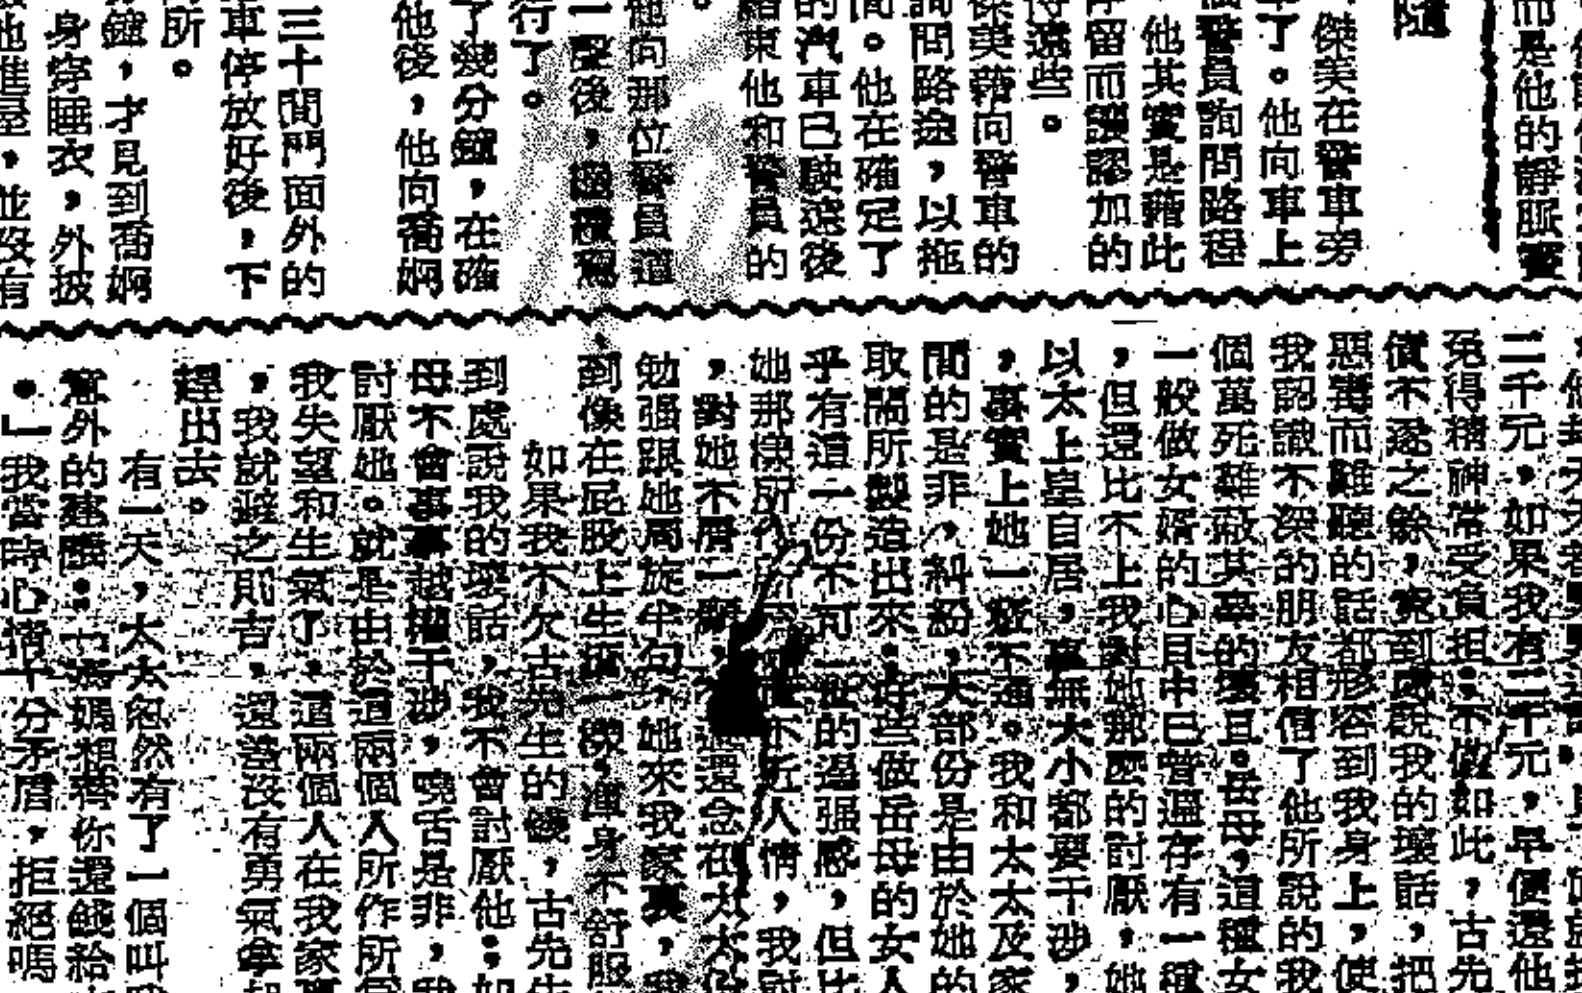 隨
而是他的靜脈竇
傑美在警車旁
了。他向車上
警員詢問路程
他其實是藉此
停留而讓認加的
得遠些。
傑美藉向警車的
詢問路途，以拖
間。他在確定了
的汽車已駛遠後
結束他和警員的
他向那位警員道
一聲後，
行了。
了幾分鐘，在確
他後，他向喬婀
三十間門面外的
車停放好後，下
所。
鐘，才見到喬婀
身穿睡衣，外披
他進屋，並沒有
二千元，如果我有二千元，早便還他
免得精神常受負担；不做如此，古先
償不遂之餘，竟到處說我的壞話，把
惡毒而難聽的話都形容到我身上，使
我認識不深的朋友相信了他所說的我
個萬死難蔽其辜的壞旦。岳母，這種女
一般做女婿的心目中已普遍存有一種
，但還比不上我對她那麽的討厭，她
以太上皇自居，事無大小都要干涉，
，事實上她一竅不通。我和太太及家
間的是非、糾紛，大部份是由於她的
取鬧所製造出來。好些做岳母的女人
乎有這一份不可一世的過强感，但比
她那樣所作所為 不近人情，我
，對她不屑一顧， 還念在太太份
勉强跟她周旋半句，她來我家裏，我
到像在屁股上生瘡一樣，渾身不舒服
如果我不欠古先生的錢，古先生
到處說我的壞話，我不會討厭他；如
母不會事事越權干涉，嘵舌是非，我
討厭她。就是由於這兩個人所作所為
我失望和生氣了，這兩個人在我家裏
，我就避之則吉，還說沒有勇氣拿起
趕出去。
有一天，太太忽然有了一個叫我
意外的建議：「媽媽想將你還錢給
。」我當時心情十分矛盾，拒絕嗎